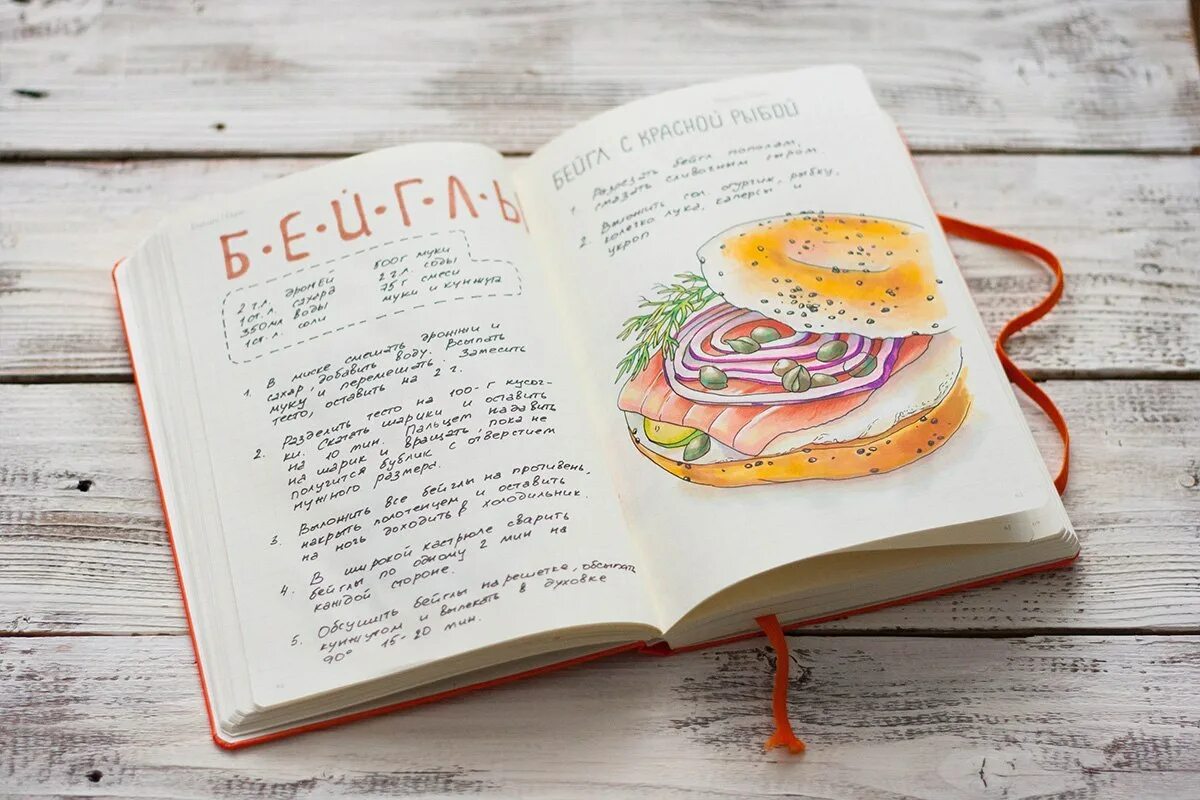 Б·Е·Й·Г·Л·Ы
2 ч.л. дрожжей
1 ст.л. сахара
350 мл воды
1 ст. л. соли
500 г муки
2 г.л. соды
25 г смеси
муки и кунжута
1. В миске смешать дрожжи и
сахар, добавить воду. Всыпать
муку и перемешать. Замесить
тесто, оставить на 2 г.
2. Разделить тесто на 100-г кусоч-
ки. Скатать шарики и оставить
на 10 мин. Пальцем надавить
на шарик и вращать, пока не
получится бублик с отверстием
нужного размера.
3. Выложить все бейглы на противень,
накрыть полотенцем и оставить
на ночь доходить в холодильник.
4. В широкой кастрюле сварить
бейглы по одному 2 мин на
каждой стороне.
5. Обсушить бейглы на решетке, обсыпать
кунжутом и выпекать в духовке
90° 15-20 мин.
БЕЙГЛ С КРАСНОЙ РЫБОЙ
1. Разрезать бейгл пополам,
смазать сливочным сыром.
2. Выложить сол. огурчик, рыбку,
колечко лука, каперсы и
укроп